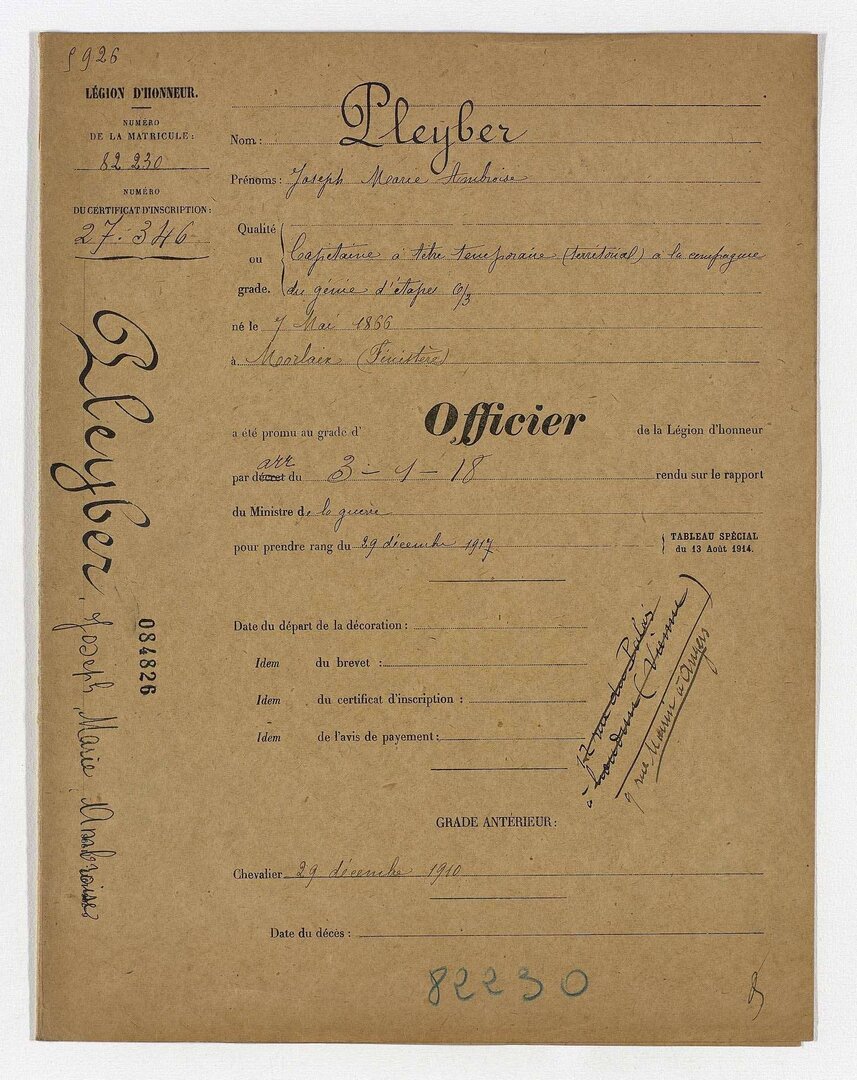 5926
LÉGION D'HONNEUR.
NUMÉRO
DE LA MATRICULE :
82 230
NUMÉRO
DU CERTIFICAT D'INSCRIPTION :
27.346
Pleyber, Joseph, Marie, Ambroise
084826
Nom : Pleyber
Prénoms : Joseph Marie Ambroise
Qualité
ou
grade.
Capitaine à titre temporaire (territorial) à la compagnie
du génie d'étapes 6/3
né le 7 Mai 1866
à Morlaix (Finistère)
a été promu au grade d' Officier de la Légion d'honneur
arr
par décret du 3 - 1 - 18 rendu sur le rapport
du Ministre de la guerre
pour prendre rang du 29 décembre 1917
TABLEAU SPÉCIAL
du 13 Août 1914.
Date du départ de la décoration :
Idem du brevet :
Idem du certificat d'inscription :
Idem de l'avis de payement :
rue du Palais
à Loudun (Vienne)
9 rue Hanin à Angers
GRADE ANTÉRIEUR :
Chevalier 29 décembre 1910
Date du décès :
82230